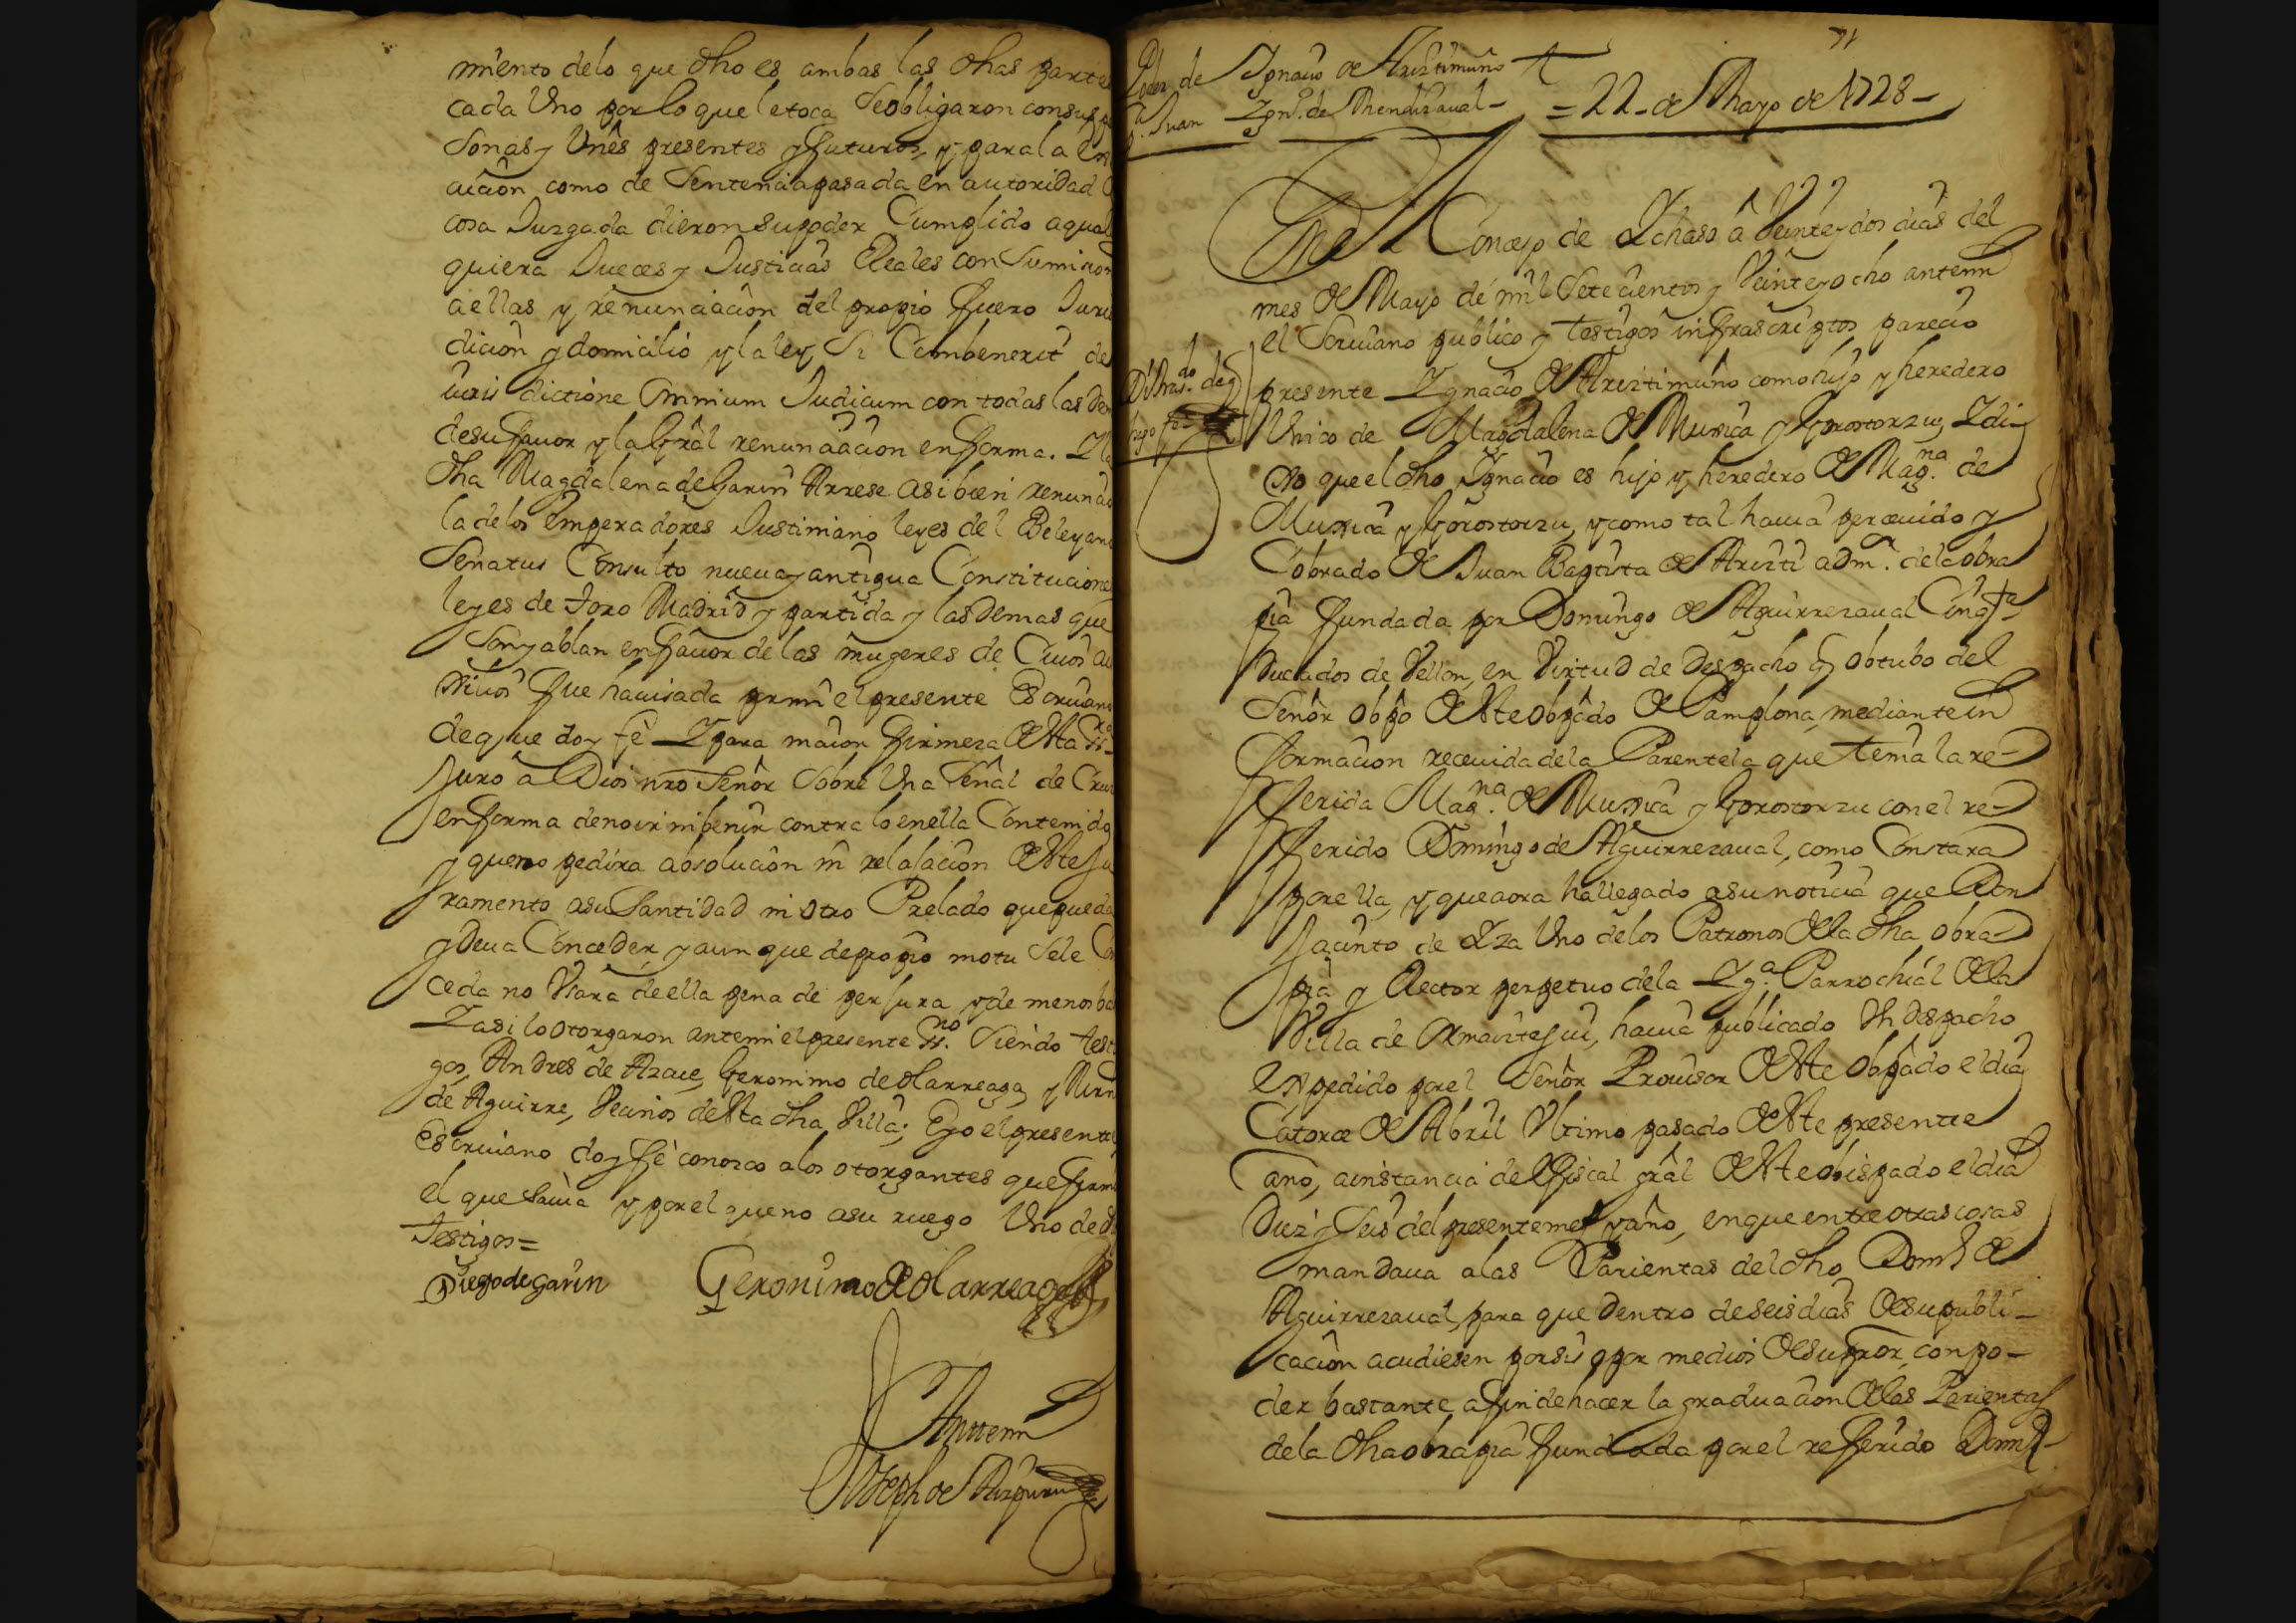 miento delo que dho es ambas las dhas partes
cada Uno por lo que le toca Se obligaron con sus pe
sonas y Vnês presentes y futuros, y para la Exe
cucion como de Sentencia pasada en autoridad
cosa Juzgada dieron su poder Cumplido a qual
quiera Jueces y Justicias Reales con Sumicion
a ellas y renunciacion del propio fuero Juris
dicion y domicilio y la ley Si Combenerit de
iuris dictione Omnium Judicum con todas las Dem
de su fauor y la Gràl renunciacion en forma. Y la
dha Magdalena de Garin Arrese asi bien renuncio
la delos Emperadores Justiniano leyes del Beleyano
Senatus Consulto nueua y antigua Constitucione
leyes de Toro Madrid y partida y las Demas que
Son y ablan en fauor de las mugeres de Cuios au
xilios fue hauisada por mi el presente Escriuano
de que doy fè Y para maior firmeza de esta ssra
Juro â Dios nro Señor Sobre Una Señal de Cruz
en forma de no ir ni benir contra lo en ella Contenido
y que no pedira absolucion ni relajacion de este Ju
ramento a su Santidad ni otro Prelado que pueda
y Deua Conceder y aunque de propio motu Sele Con
ceda no Usara de ella pena de perjura y de menos ba
Y asi lo otorgaron ante mi el presente ssno. Siendo testi
gos, Andres de Azaue, Geronimo de olarreaga, y Mrn
de Aguirre, Vecinos de esta dha Villa; E yo el presente
Escriuano doy fè conozco a los otorgantes que firmo
el que Sauia y por el que no a su ruego Uno de d
Testigos=
Diego de Garin Geronimo de olarreaga
Antemi
Joseph de Aizpuru
71
Poder de Ignacio de Ariztimuño
pa. Juan Ign.o de Mendizaual-
=22- de Mayo de 1728-
En el Concejo de Ychaso â Veinte y dos dias del
mes de Mayo de mil Setecientos y Veinte y ocho ante mi
el Scriuano publico y Testigos infrascriptos parecio
presente Ygnacio de Ariztimuño como hijo y heredero
Unico de Magdalena de Muxica y Gorostorzu, Y di-
xo que el dho Ygnacio es hijo y heredero de Magna. de
Muxica y Gorostorzu, y como tal hauia perceuido y
Cobrado de Juan Baptista de Arizti adm.r dela obra
pia fundada por Domingo de Aguirrezaual Cinqta
Ducados de Vellon, en Virtud de Despacho q obtubo del
Señor obpo de este obpâdo de Pamplona, mediante in
formacion receuida dela Parentela que Tenia la re-
ferida Magna. de Muxica y Gorostorzu con el re-
ferido Domingo de Aguirrezaual, como Constara
por ella, y que aora ha llegado a su noticia que Don
Jacinto de Yza Uno delos Patronos de la dha obra
pia y Rector perpetuo dela Yga. Parrochial de la
Villa de Ormaiztegui, hauia publicado Un despacho
Expedido por el Señor Prouisor de este obpâdo el dia
Catorce de Abril Ultimo pasado de este presente
año, a instancia del Fiscal gràl de este obispado el dia
Diez y Seis del presente mes y año, en que entre otras cosas
mandaua a las Parientas del dho Domo. de
Aguirrezaual, para que Dentro de seis dias de su publi-
cacion acudiesen por si o por medios de su pror, con po-
der bastante a fin de hacer la graduacion de las Parientas
dela dha obra pia fundada por el referido Domo